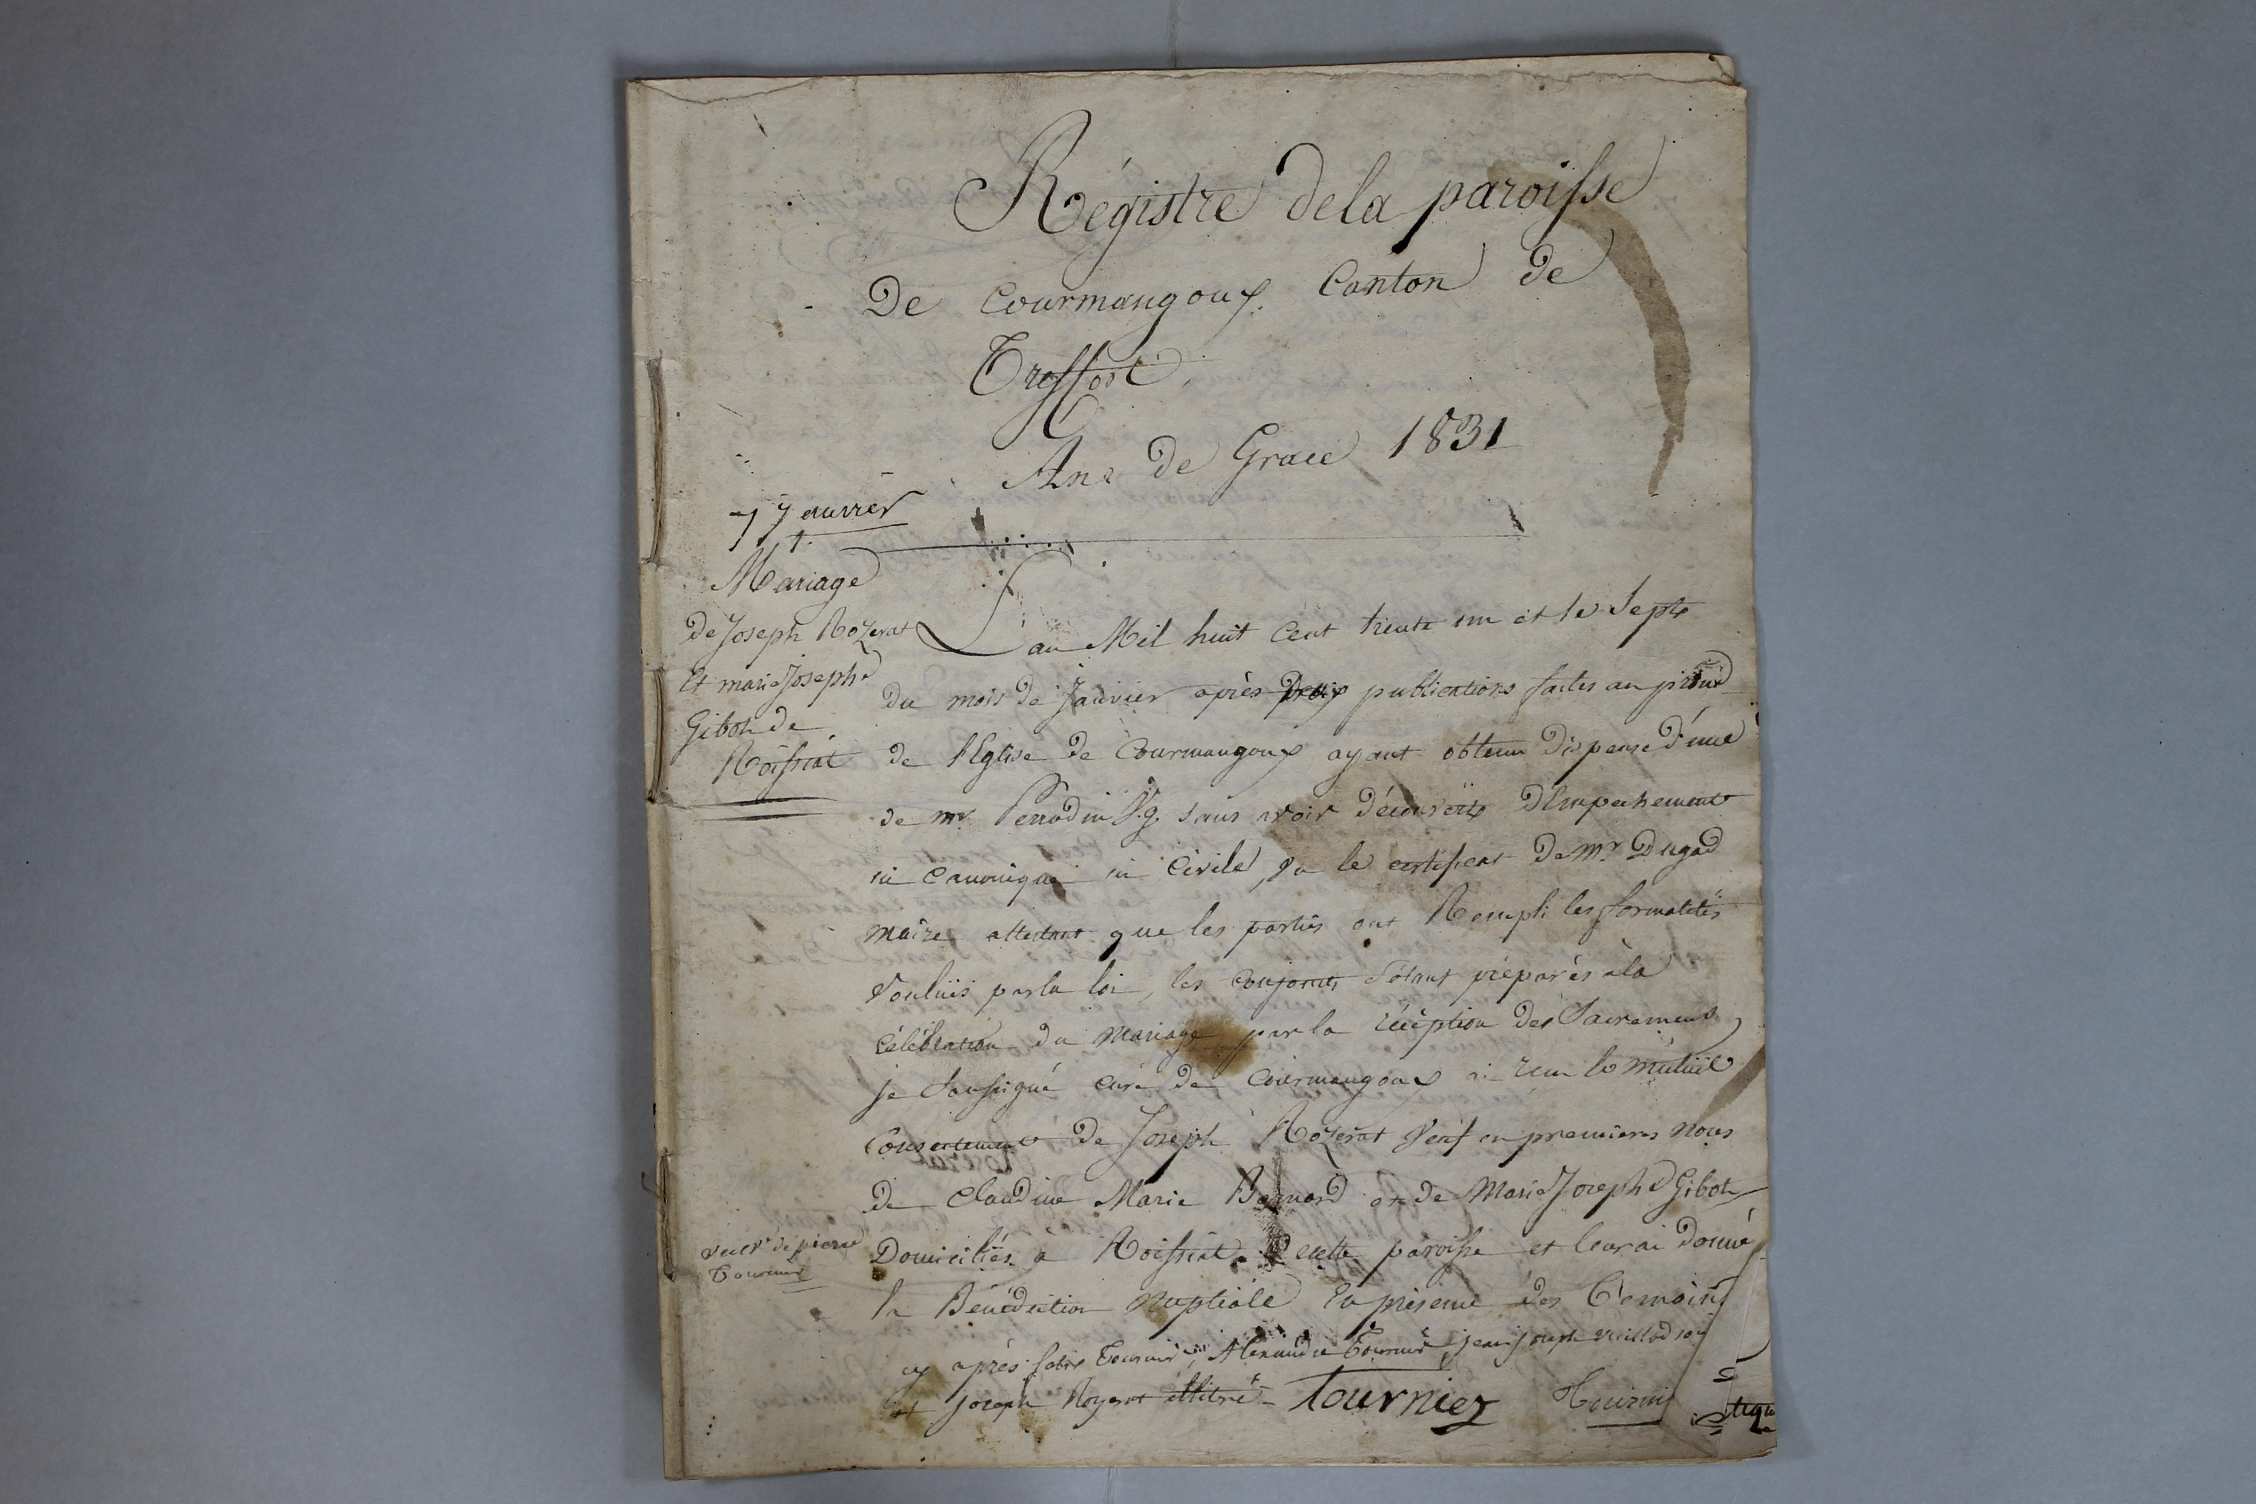 Régistre de la paroisse
De Courmangoux Canton de
Treffort
An de Grace 1831
7 Janvier
1.
Mariage
De Joseph Rozerat
Et marie Joseph
Gibot de
Roissiat
L'an Mil huit cent trente un et le Sept
du mois de Janvier après Deux publications faites au prône
de l'Eglise de Courmangoux ayant obtenu dispense d'une
de mr. Perrodin V.g. sans avoir découvert d'Empechement
ni canonique ni civile, Vu le certificat de Mr Dugad
maire attestant que les parties ont Rempli les formalités
Voulues par la loi, les conjoints s'étant préparés à la
célébration du mariage par la réception des Sacremens,
je Soussigné curé de Courmangoux ai reçu le mutuel
Consentement de Joseph Rozerat Veuf en premieres noces
de Claudine Marie Bernard et de Marie Joseph Gibot
Veuve de pierre
Tournier
Domiciliés à Roissiat de cette paroisse et leur ai donné
la Bénédiction Nuptiale En présence des Témoins
cy après Tournier, Alexandre Tournier, jean joseph
et Joseph Rozerat illitré - Tournier